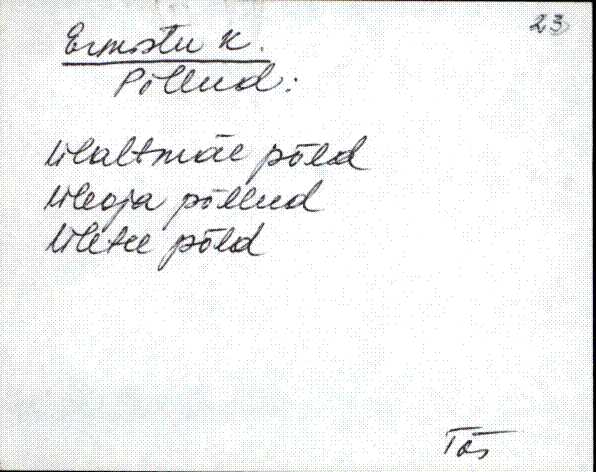 23
Ermistu k.
Põllud:
Ülaltmäe põld
Üleoja põllud
Ületee põld
Tõs